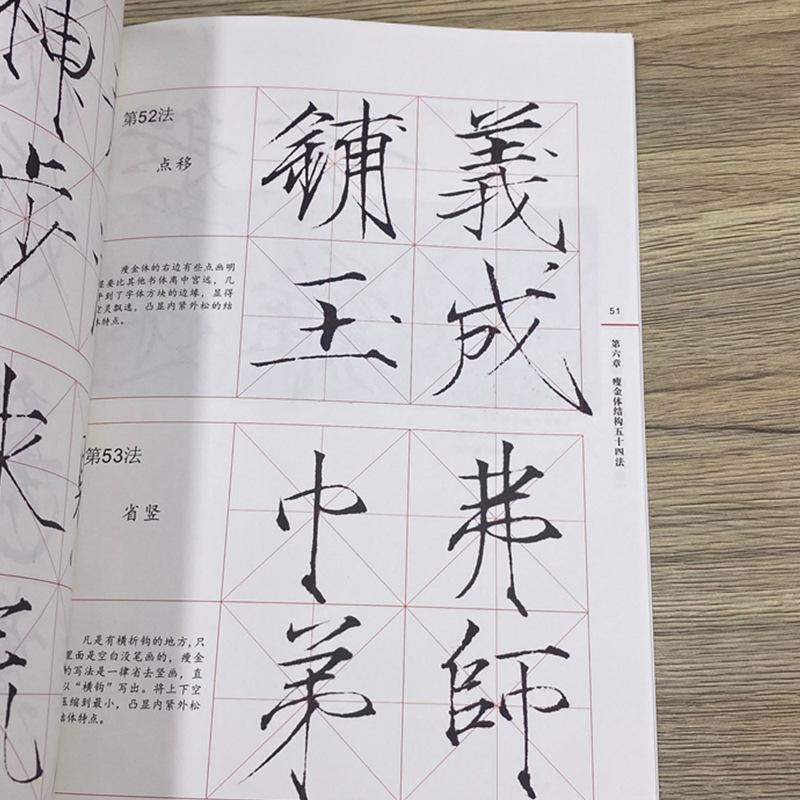 步
第52法
点移
鋪 義
玉 成
瘦金体的右边有些点画明
显要比其他书体离中宫远，几
乎到了字体方块的边缘，显得
空灵飘逸，凸显内紧外松的结
体特点。
51
第六章 瘦金体结构五十四法
第53法
省竖
中 弗
弟 師
凡是有横折钩的地方，只
里面是空白没笔画的，瘦金
的写法是一律省去竖画，直
以“横钩”写出。将上下空
压缩到最小，凸显内紧外松
结体特点。